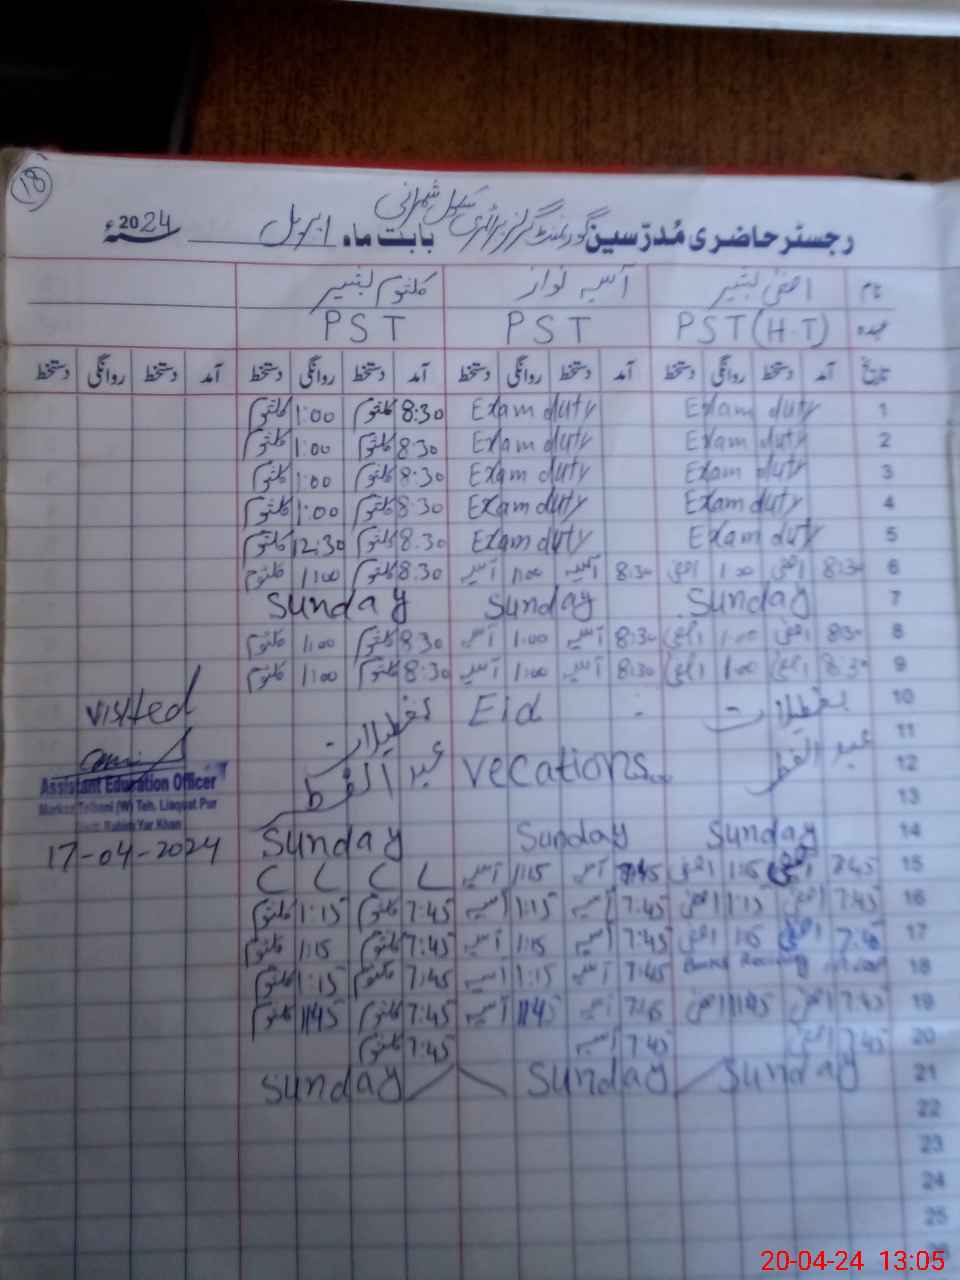 18
رجسٹر حاضری مُدرّسین گورنمنٹ گرلز پرائمری سکول بابت ماہ اپریل 2024ء
نام آسیہ نواز کلثوم بشیر
عہدہ PST (H.T) PST PST
تاریخ آمد دستخط روانگی دستخط آمد دستخط روانگی دستخط آمد دستخط روانگی دستخط آمد دستخط روانگی دستخط
1 Exam duty Exam duty 8:30 کلثوم 1:00 کلثوم
2 Exam duty Exam duty 8:30 کلثوم 1:00 کلثوم
3 Exam duty Exam duty 8:30 کلثوم 1:00 کلثوم
4 Exam duty Exam duty 8:30 کلثوم 1:00 کلثوم
5 Exam duty Exam duty 8:30 کلثوم 12:30 کلثوم
6 8:30 1:00 8:30 آسیہ 1:00 آسیہ 8:30 کلثوم 1:00 کلثوم
7 Sunday Sunday Sunday
8 8:30 1:00 8:30 آسیہ 1:00 آسیہ 8:30 کلثوم 1:00 کلثوم
9 8:30 1:00 8:30 آسیہ 1:00 آسیہ 8:30 کلثوم 1:00 کلثوم
10 تعطیلات Eid تعطیلات visited
11 عید الفطر
12 vecations عید الفطر
Assistant Education Officer
13
Markaz (W) Teh. Liaquat Pur
Rahim Yar Khan
14 Sunday Sunday Sunday
17-04-2024
15 7:45 1:15 7:45 آسیہ 1:15 آسیہ L L L L
16 7:45 1:15 7:45 آسیہ 1:15 آسیہ 7:45 کلثوم 1:15 کلثوم
17 7:45 1:15 7:45 آسیہ 1:15 آسیہ 7:45 کلثوم 1:15 کلثوم
18 7:45 آسیہ 1:15 آسیہ 7:45 کلثوم 1:15 کلثوم
19 7:45 11:45 7:45 آسیہ 11:45 آسیہ 7:45 کلثوم 11:45 کلثوم
20 7:45 7:45 آسیہ 7:45 کلثوم
21 Sunday Sunday Sunday
22
23
24
25
20-04-24 13:05